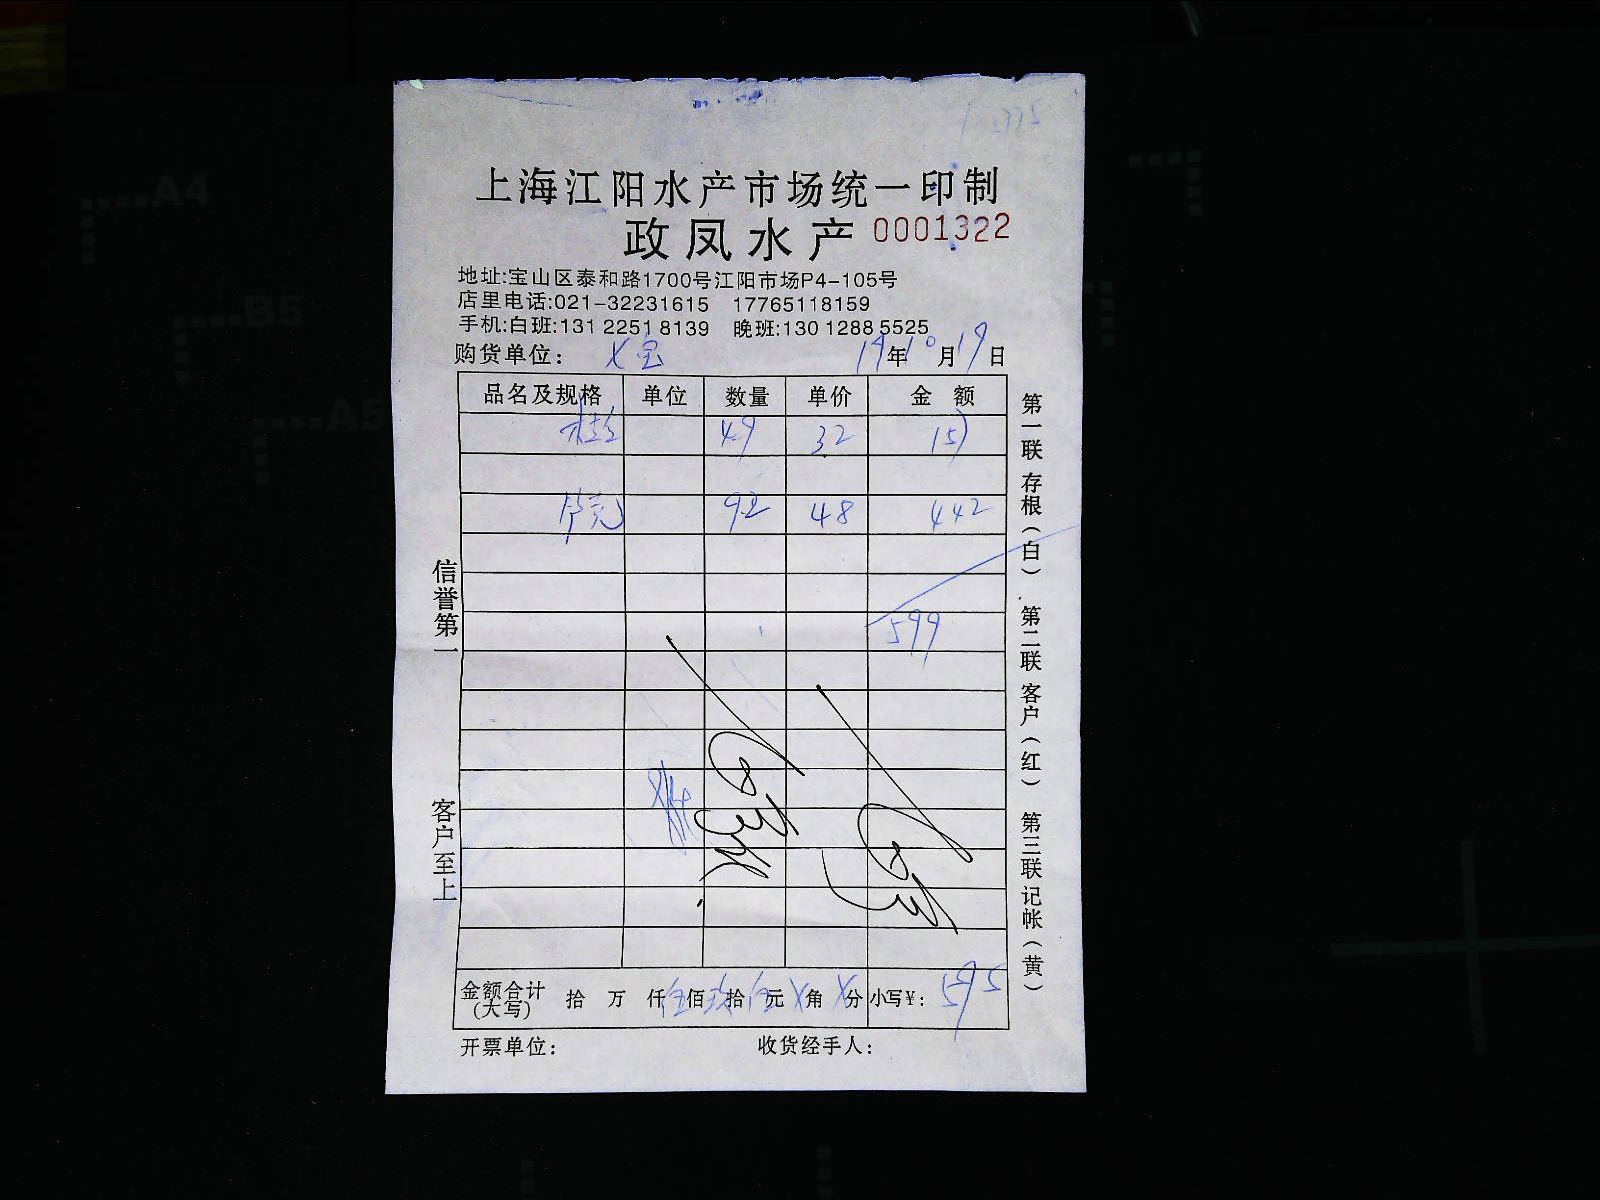 上海江阳水产市场统一印制
政凤水产 0001322
地址:宝山区泰和路1700号江阳市场P4-105号
店里电话:021-32231615 17765118159
手机:白班:131 2251 8139 晚班:130 1288 5525
购货单位: 19年10月19日
品名及规格 单位 数量 单价 金额
49 32 157
92 48 442
599
金额合计(大写) 拾 万 仟伍佰玖拾伍元X角X分 小写¥: 595
开票单位: 收货经手人:
信誉第一
客户至上
第一联 存根(白) 第二联 客户(红) 第三联 记帐(黄)
A4
B5
A5